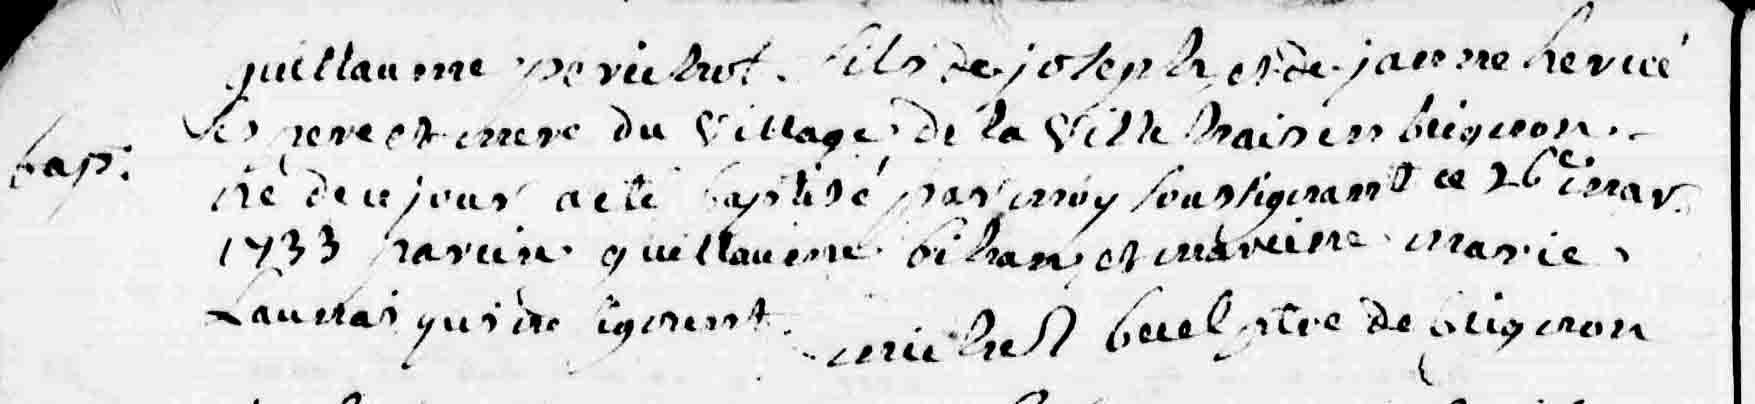 guillaume perichot fils de joseph et de janne hervieé
ses pere et mere du Village de la Ville hais en brignon
bap. né de ce jour a eté baptisé par moy soussignant ce 26e mar.
1733 parein guillaume bihan et mareine marie
Launai qui ne signent. michel buel ptre de brignon